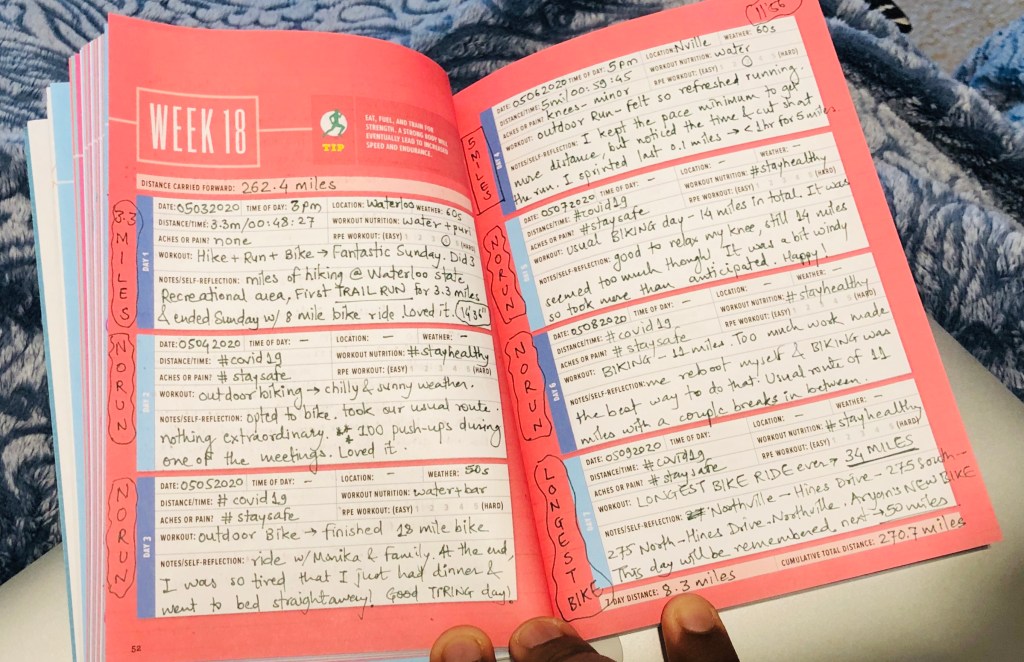 WEEK 18
TIP
EAT, FUEL, AND TRAIN FOR
STRENGTH. A STRONG BODY WILL
EVENTUALLY LEAD TO INCREASED
SPEED AND ENDURANCE.
DISTANCE CARRIED FORWARD: 262.4 miles
3.3 MILES
DAY 1
DATE: 05032020 TIME OF DAY: 3pm LOCATION: Waterloo WEATHER: 60s
DISTANCE/TIME: 3.3m/00:48:27 WORKOUT NUTRITION: water + puri
ACHES OR PAIN? none RPE WORKOUT: (EASY) 1 2 3 4 5 (HARD)
WORKOUT: Hike + Run + Bike → Fantastic Sunday. Did 3
NOTES/SELF-REFLECTION: miles of hiking @ Waterloo State
Recreational area, First TRAIL RUN for 3.3 miles
& ended Sunday w/ 8 mile bike ride. Loved it. 14'36"
NO RUN
DAY 2
DATE: 05042020 TIME OF DAY: – LOCATION: – WEATHER: –
DISTANCE/TIME: #covid19 WORKOUT NUTRITION: #stayhealthy
ACHES OR PAIN? #staysafe RPE WORKOUT: (EASY) 1 2 3 4 5 (HARD)
WORKOUT: outdoor biking → chilly & sunny weather.
NOTES/SELF-REFLECTION: opted to bike. took our usual route.
nothing extraordinary. 100 push-ups during
one of the meetings. Loved it.
NO RUN
DAY 3
DATE: 05052020 TIME OF DAY: – LOCATION: – WEATHER: 50s
DISTANCE/TIME: #covid19 WORKOUT NUTRITION: water + bar
ACHES OR PAIN? #staysafe RPE WORKOUT: (EASY) 1 2 3 4 5 (HARD)
WORKOUT: outdoor Bike → finished 18 mile bike
NOTES/SELF-REFLECTION: ride w/ Monika & family. At the end,
I was so tired that I just had dinner &
went to bed straightaway! Good TIRING day!
52
11'56"
5 MILES
DAY 4
DATE: 05062020 TIME OF DAY: 5pm LOCATION: Nville WEATHER: 60s
DISTANCE/TIME: 5mi/00:59:45 WORKOUT NUTRITION: water
ACHES OR PAIN? knees – minor RPE WORKOUT: (EASY) 1 2 3 4 5 (HARD)
WORKOUT: outdoor Run – felt so refreshed running.
NOTES/SELF-REFLECTION: I kept the pace minimum to get
more distance, but noticed the time & cut short
the run. I sprinted last 0.1 miles → <1hr for 5 miles.
NO RUN
DAY 5
DATE: 05072020 TIME OF DAY: – LOCATION: – WEATHER: –
DISTANCE/TIME: #covid19 WORKOUT NUTRITION: #stayhealthy
ACHES OR PAIN? #staysafe RPE WORKOUT: (EASY) 1 2 3 4 5 (HARD)
WORKOUT: Usual BIKING day – 14 miles in total. It was
NOTES/SELF-REFLECTION: good to relax my knee, still 14 miles
seemed too much though! It was a bit windy
so took more than anticipated. Happy!
NO RUN
DAY 6
DATE: 05082020 TIME OF DAY: – LOCATION: – WEATHER: –
DISTANCE/TIME: #covid19 WORKOUT NUTRITION: #stayhealthy
ACHES OR PAIN? #staysafe RPE WORKOUT: (EASY) 1 2 3 4 5 (HARD)
WORKOUT: BIKING – 11 miles. Too much work made
NOTES/SELF-REFLECTION: me reboot myself & BIKING was
the best way to do that. Usual route of 11
miles with a couple breaks in between.
LONGEST BIKE
DAY 7
DATE: 05092020 TIME OF DAY: LOCATION: – WEATHER: –
DISTANCE/TIME: #covid19 WORKOUT NUTRITION: #stayhealthy
ACHES OR PAIN? #staysafe RPE WORKOUT: (EASY) 1 2 3 4 5 (HARD)
WORKOUT: LONGEST BIKE RIDE ever → 34 MILES
NOTES/SELF-REFLECTION: Northville – Hines Drive – 275 South –
275 North – Hines Drive – Northville. Aryan's NEW BIKE
This day will be remembered. next → 50 miles
7 DAY DISTANCE: 8.3 miles CUMULATIVE TOTAL DISTANCE: 270.7 miles